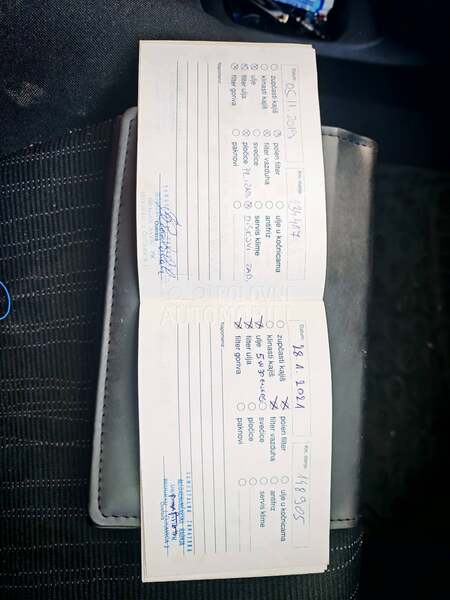 Datum 05. 11. 2019
Km. stanje: 134487
zupčasti kajiš
klinasti kajiš
ulje
filter ulja
filter goriva
polen filter
filter vazduha
svećice
pločice
paknovi
ulje u kočnicama
antifriz
servis klime
DISKOVI ZAD.
Napomena:
Datum: 28. 1. 2021
Km. stanje: 148905
zupčasti kajiš
klinasti kajiš
ulje 5W30
filter ulja
filter goriva
polen filter
filter vazduha
svećice
pločice
paknovi
ulje u kočnicama
antifriz
servis klime
Napomena:
AUTOMO